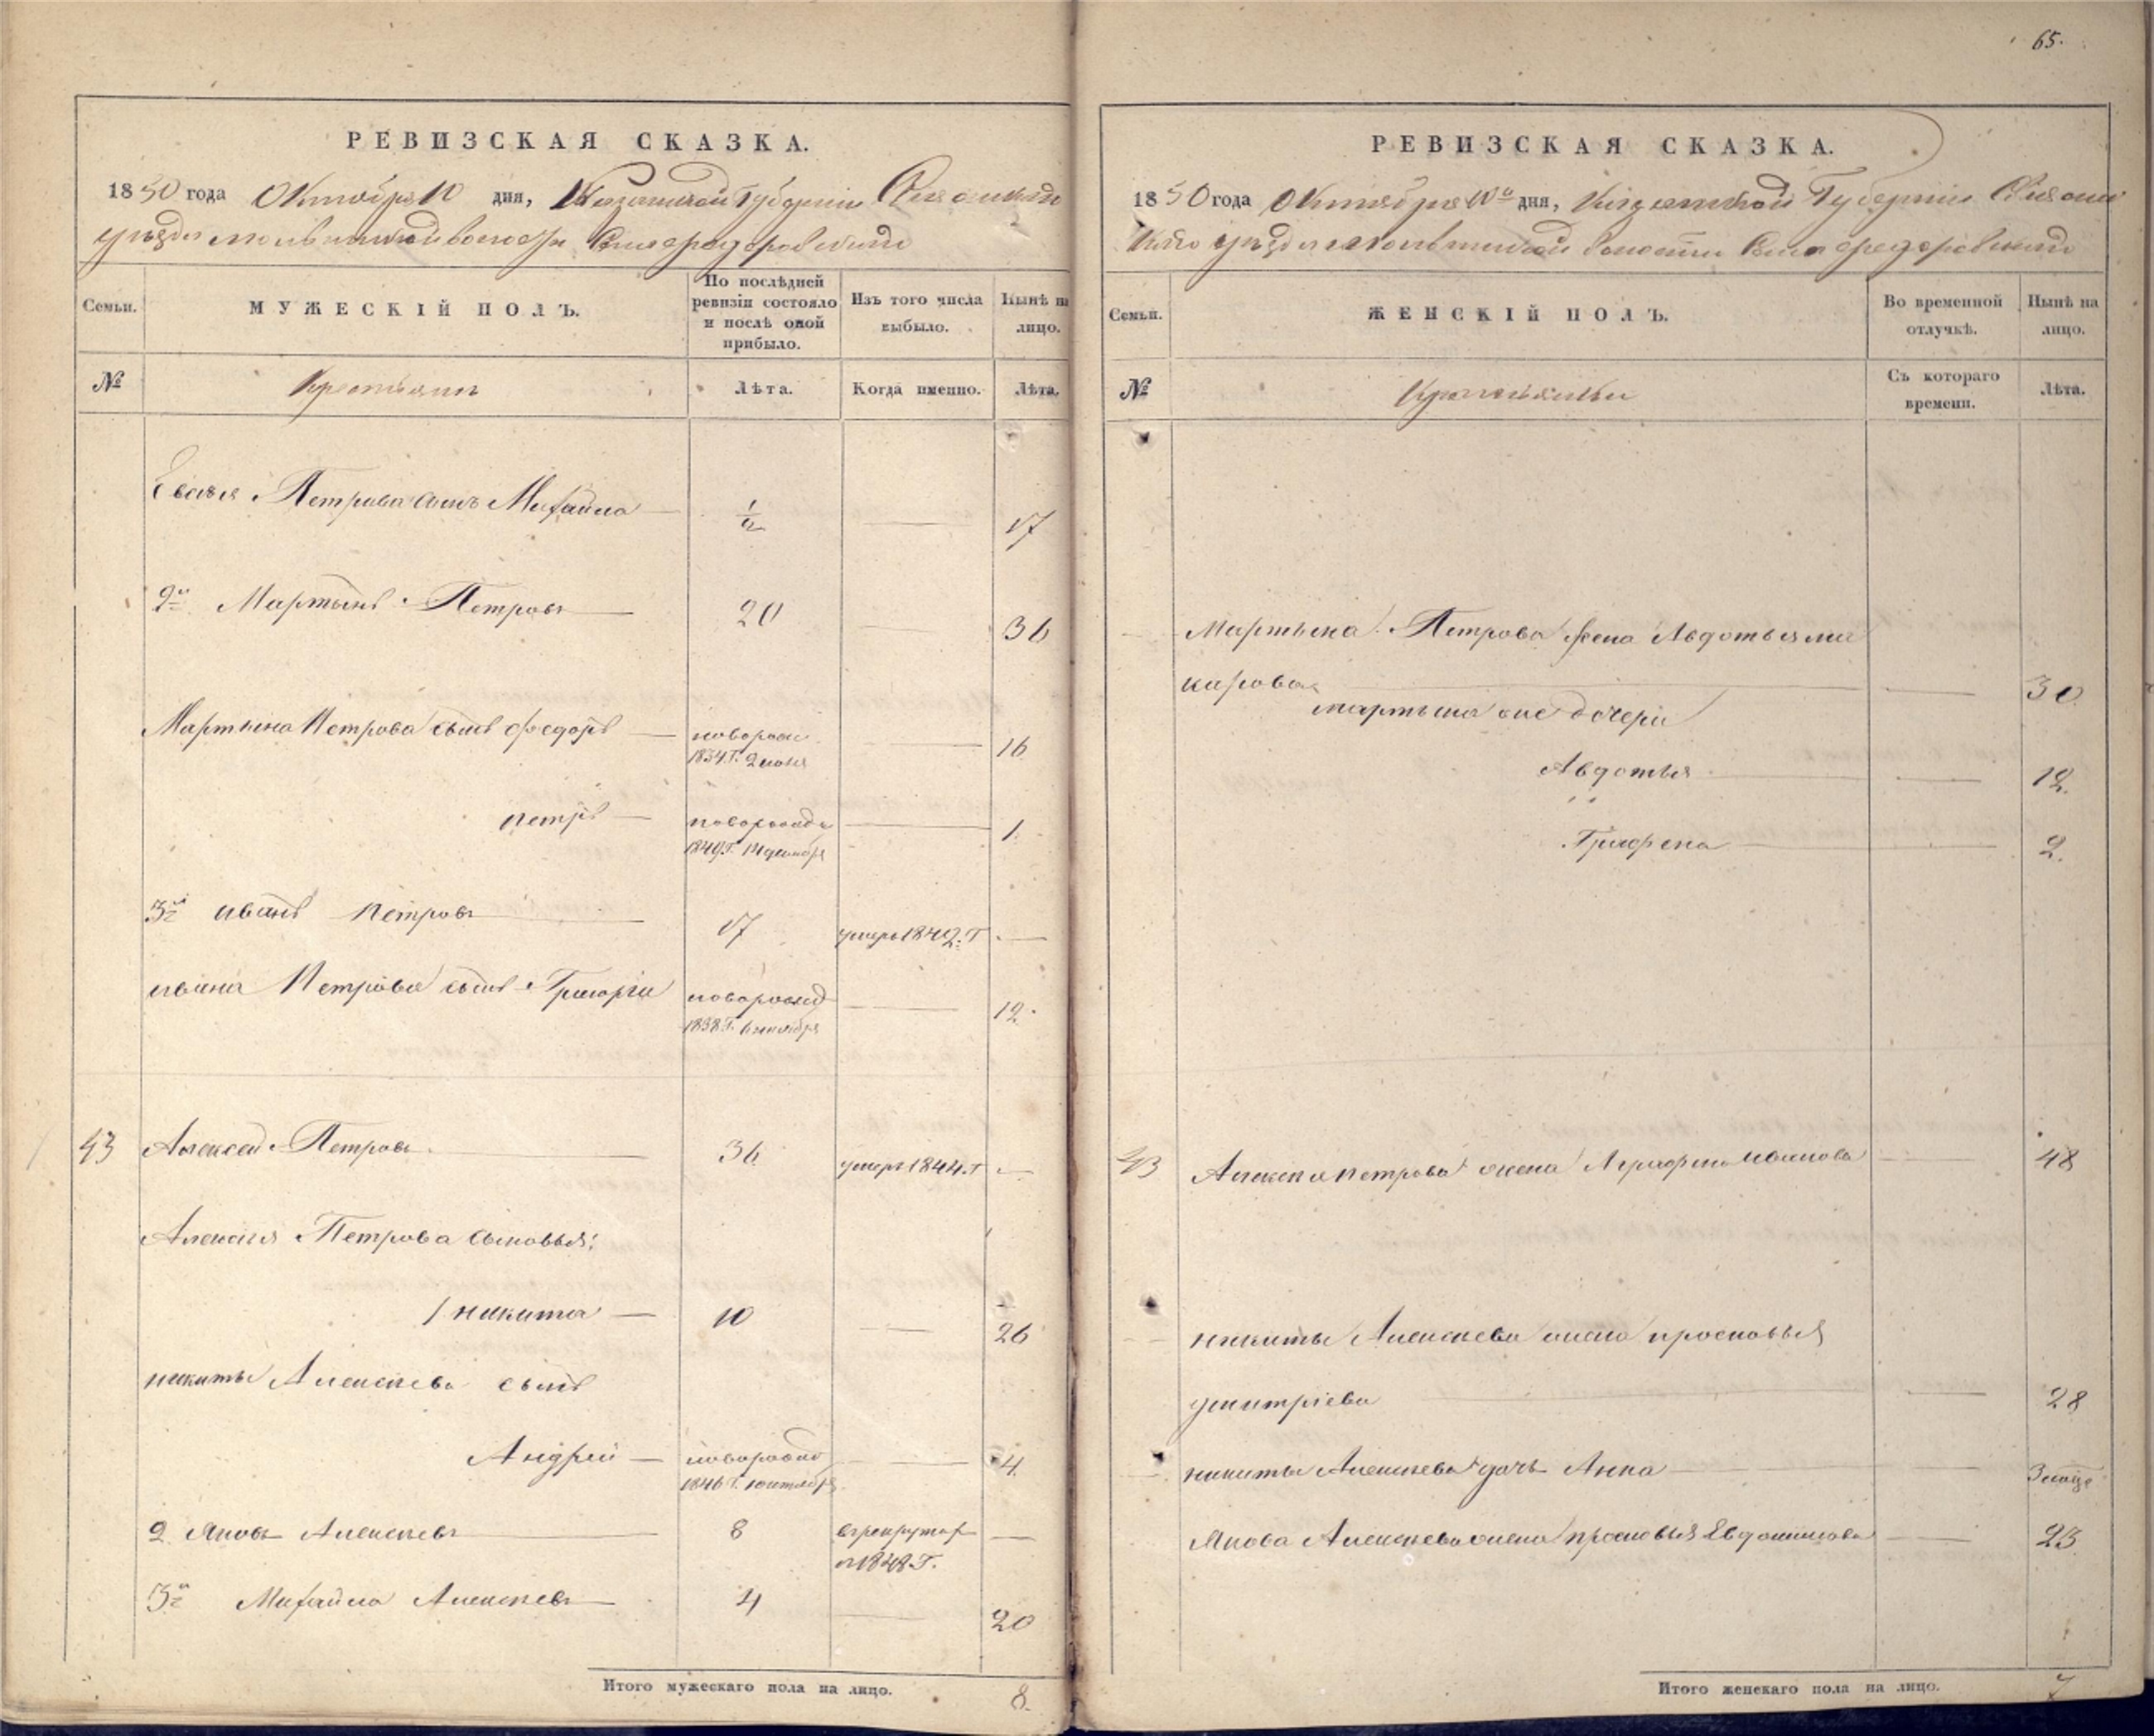 65.
РЕВИЗСКАЯ СКАЗКА.
1850 года Октября 10 дня, Казанской Губерніи
уѣзда волости Села Федоровскаго
Семьи.
МУЖЕСКІЙ ПОЛЪ.
По послѣдней ревизіи состояло и послѣ оной прибыло.
Изъ того числа выбыло.
Нынѣ на лицо.
№
Крестьяне
Лѣта.
Когда именно.
Лѣта.
Петрова сынъ Михайла 1/2 17
2й Мартынъ Петровъ 20 36
Мартына Петрова сынъ Федоръ новорож 16
1834 г. 2 июня
Петръ новорожд 1
1849 г. 14 декабря
3й Иванъ Петровъ 17 умеръ 1842. г
Ивана Петрова сынъ Григорій новорожд 12.
1838 г.
43 Алексей Петровъ 36 умеръ 1844. г
Алексѣя Петрова сыновья:
1 Никита 10 26
Никиты Алексѣева сынъ
Андрей новорожд 4
1846 г.
2 Яковъ Алексѣевъ 8 в рекруты
1848 г.
3й Михайла Алексѣевъ 4 20
Итого мужескаго пола на лицо. 8.
РЕВИЗСКАЯ СКАЗКА.
1850 года Октября 10го дня, Казанской Губерніи Свіяж
скаго уѣзда волости Села Федоровскаго
Семьи.
ЖЕНСКІЙ ПОЛЪ.
Во временной отлучкѣ.
Нынѣ на лицо.
№
Крестьянки
Съ котораго времени.
Лѣта.
Мартына Петрова жена Авдотья ма
карова 30
Мартына дочери
Авдотья 12.
Графена 2.
43 Алексѣя Петрова жена Аграфена Иванова 48
Никиты Алексѣева жена Просковья
Дмитріева 28
Никиты Алексѣева дочь Анна
Якова Алексѣева жена Просковья Евдокимова 23
Итого женскаго пола на лицо. 7